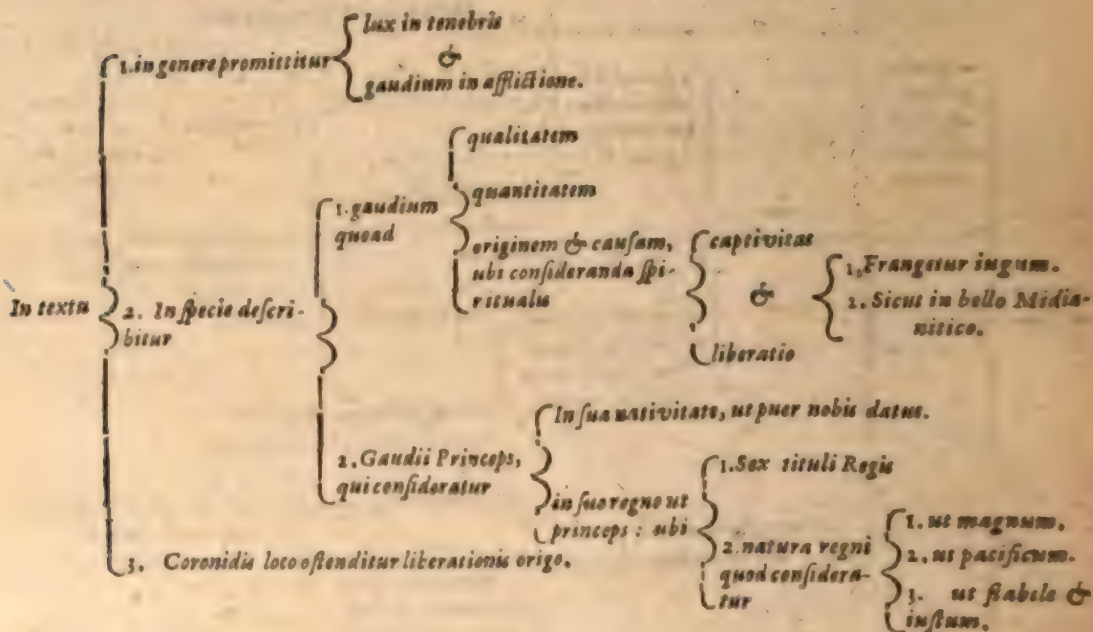 In textu
1. in genere promittitur
lux in tenebris
&
gaudium in afflictione.
2. In ſpecie deſcri-
bitur
1. gaudium
quoad
qualitatem
quantitatem
originem & cauſam,
ubi conſideranda ſpi-
ritualis
captivitas
&
liberatio
1. Frangetur iugum.
2. Sicut in bello Midia-
nitico.
2. Gaudii Princeps,
qui conſideratur
In ſua nativitate, ut puer nobis datus.
in ſuo regno ut
princeps : ubi
1. Sex tituli Regis
2. natura regni
quod conſidera-
tur
1. ut magnum.
2. ut pacificum.
3. ut ſtabile &
iuſtum.
3. Coronidis loco oſtenditur liberationis origo.